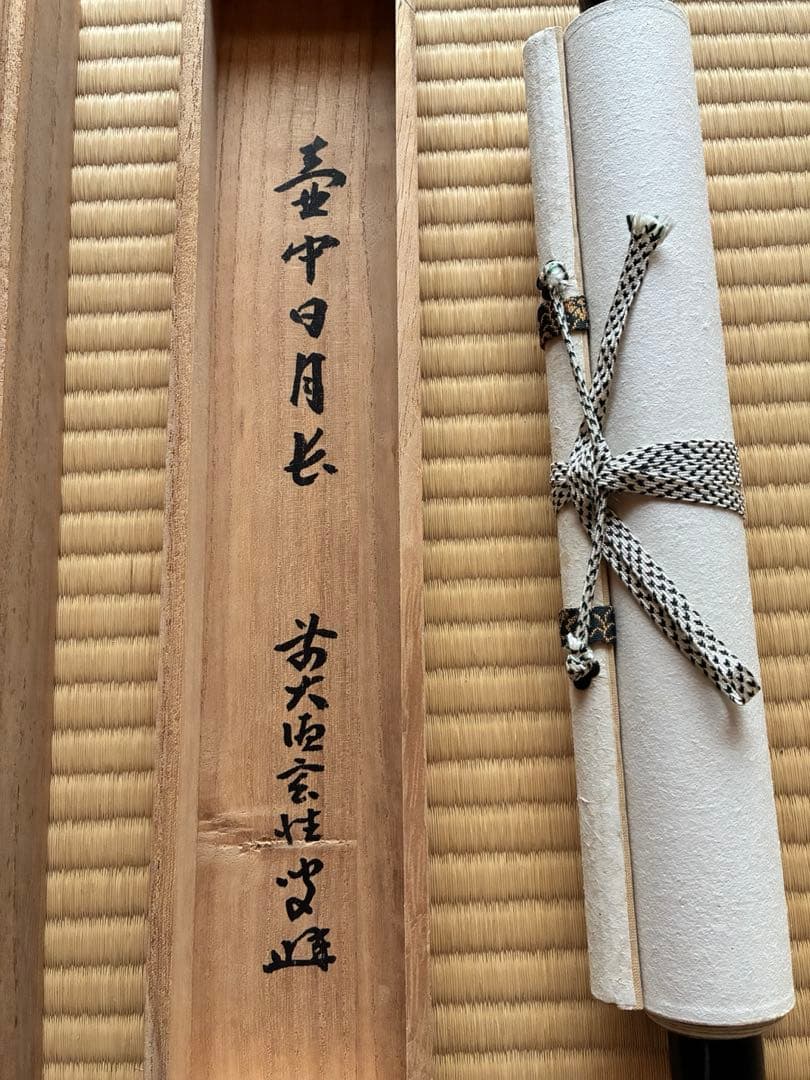 壷中日月長
前大徳玄性叟